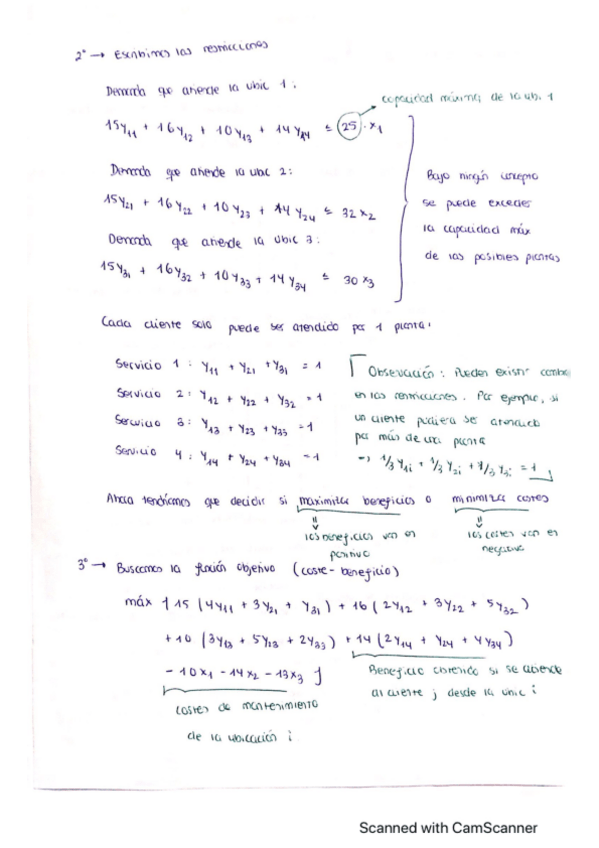 2° → Escribimos las restricciones
Demanda que atiende la ubic 1:
capacidad máxima de la ub. 1
15y₁₁ + 16y₁₂ + 10y₁₃ + 14y₁₄ ≤ 25·x₁
Demanda que atiende la ubic 2:
15y₂₁ + 16y₂₂ + 10y₂₃ + 14y₂₄ ≤ 32x₂
Demanda que atiende la ubic 3:
15y₃₁ + 16y₃₂ + 10y₃₃ + 14y₃₄ ≤ 30x₃
Bajo ningún concepto
se puede exceder
la capacidad máx
de las posibles plantas
Cada cliente solo puede ser atendido por 1 planta:
Servicio 1: y₁₁ + y₂₁ + y₃₁ = 1
Servicio 2: y₁₂ + y₂₂ + y₃₂ = 1
Servicio 3: y₁₃ + y₂₃ + y₃₃ = 1
Servicio 4: y₁₄ + y₂₄ + y₃₄ = 1
Observación: Pueden existir
en las restricciones. Por ejemplo, si
un cliente pudiera ser atendido
por más de una planta
→ 1/3 y₁ᵢ + 1/3 y₂ᵢ + 1/3 y₃ᵢ = 1
Ahora tendríamos que decidir si maximizar beneficios o minimizar costes
los beneficios van en
positivo
los costes van en
negativo
3° → Buscamos la función objetivo (coste-beneficio)
máx { 15 (4y₁₁ + 3y₂₁ + y₃₁) + 16 (2y₁₂ + 3y₂₂ + 5y₃₂)
+ 10 (3y₁₃ + 5y₁₃ + 2y₃₃) + 14 (2y₁₄ + y₂₄ + 4y₃₄)
- 10x₁ - 14x₂ - 13x₃ }
Beneficio obtenido si se atiende
al cliente j desde la ubic i
costes de mantenimiento
de la ubicación i
Scanned with CamScanner